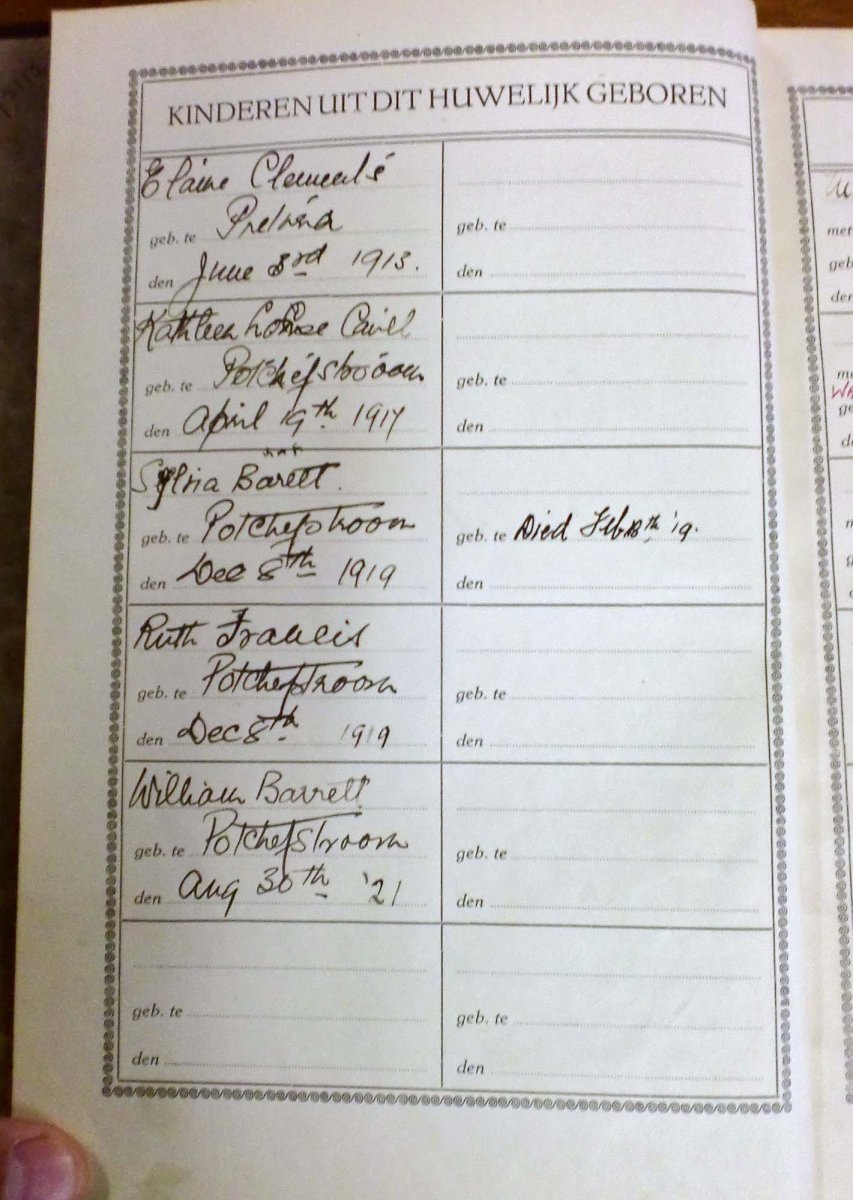 KINDEREN UIT DIT HUWELIJK GEBOREN
Elaine Clements
geb. te Pretoria
den June 3rd 1913.
Kathleen Louise Cavell
geb. te Potchefstroom
den April 19th 1917
Sylvia Barett.
geb. te Potchefstroom
den Dec 8th 1919
Ruth Francis
geb. te Potchefstroom
den Dec 8th 1919
William Barrett
geb. te Potchefstroom
den Aug 30th '21
geb. te
den
geb. te
den
geb. te
den
geb. te Died Feb '19.
den
geb. te
den
geb. te
den
geb. te
den
met
geb
den